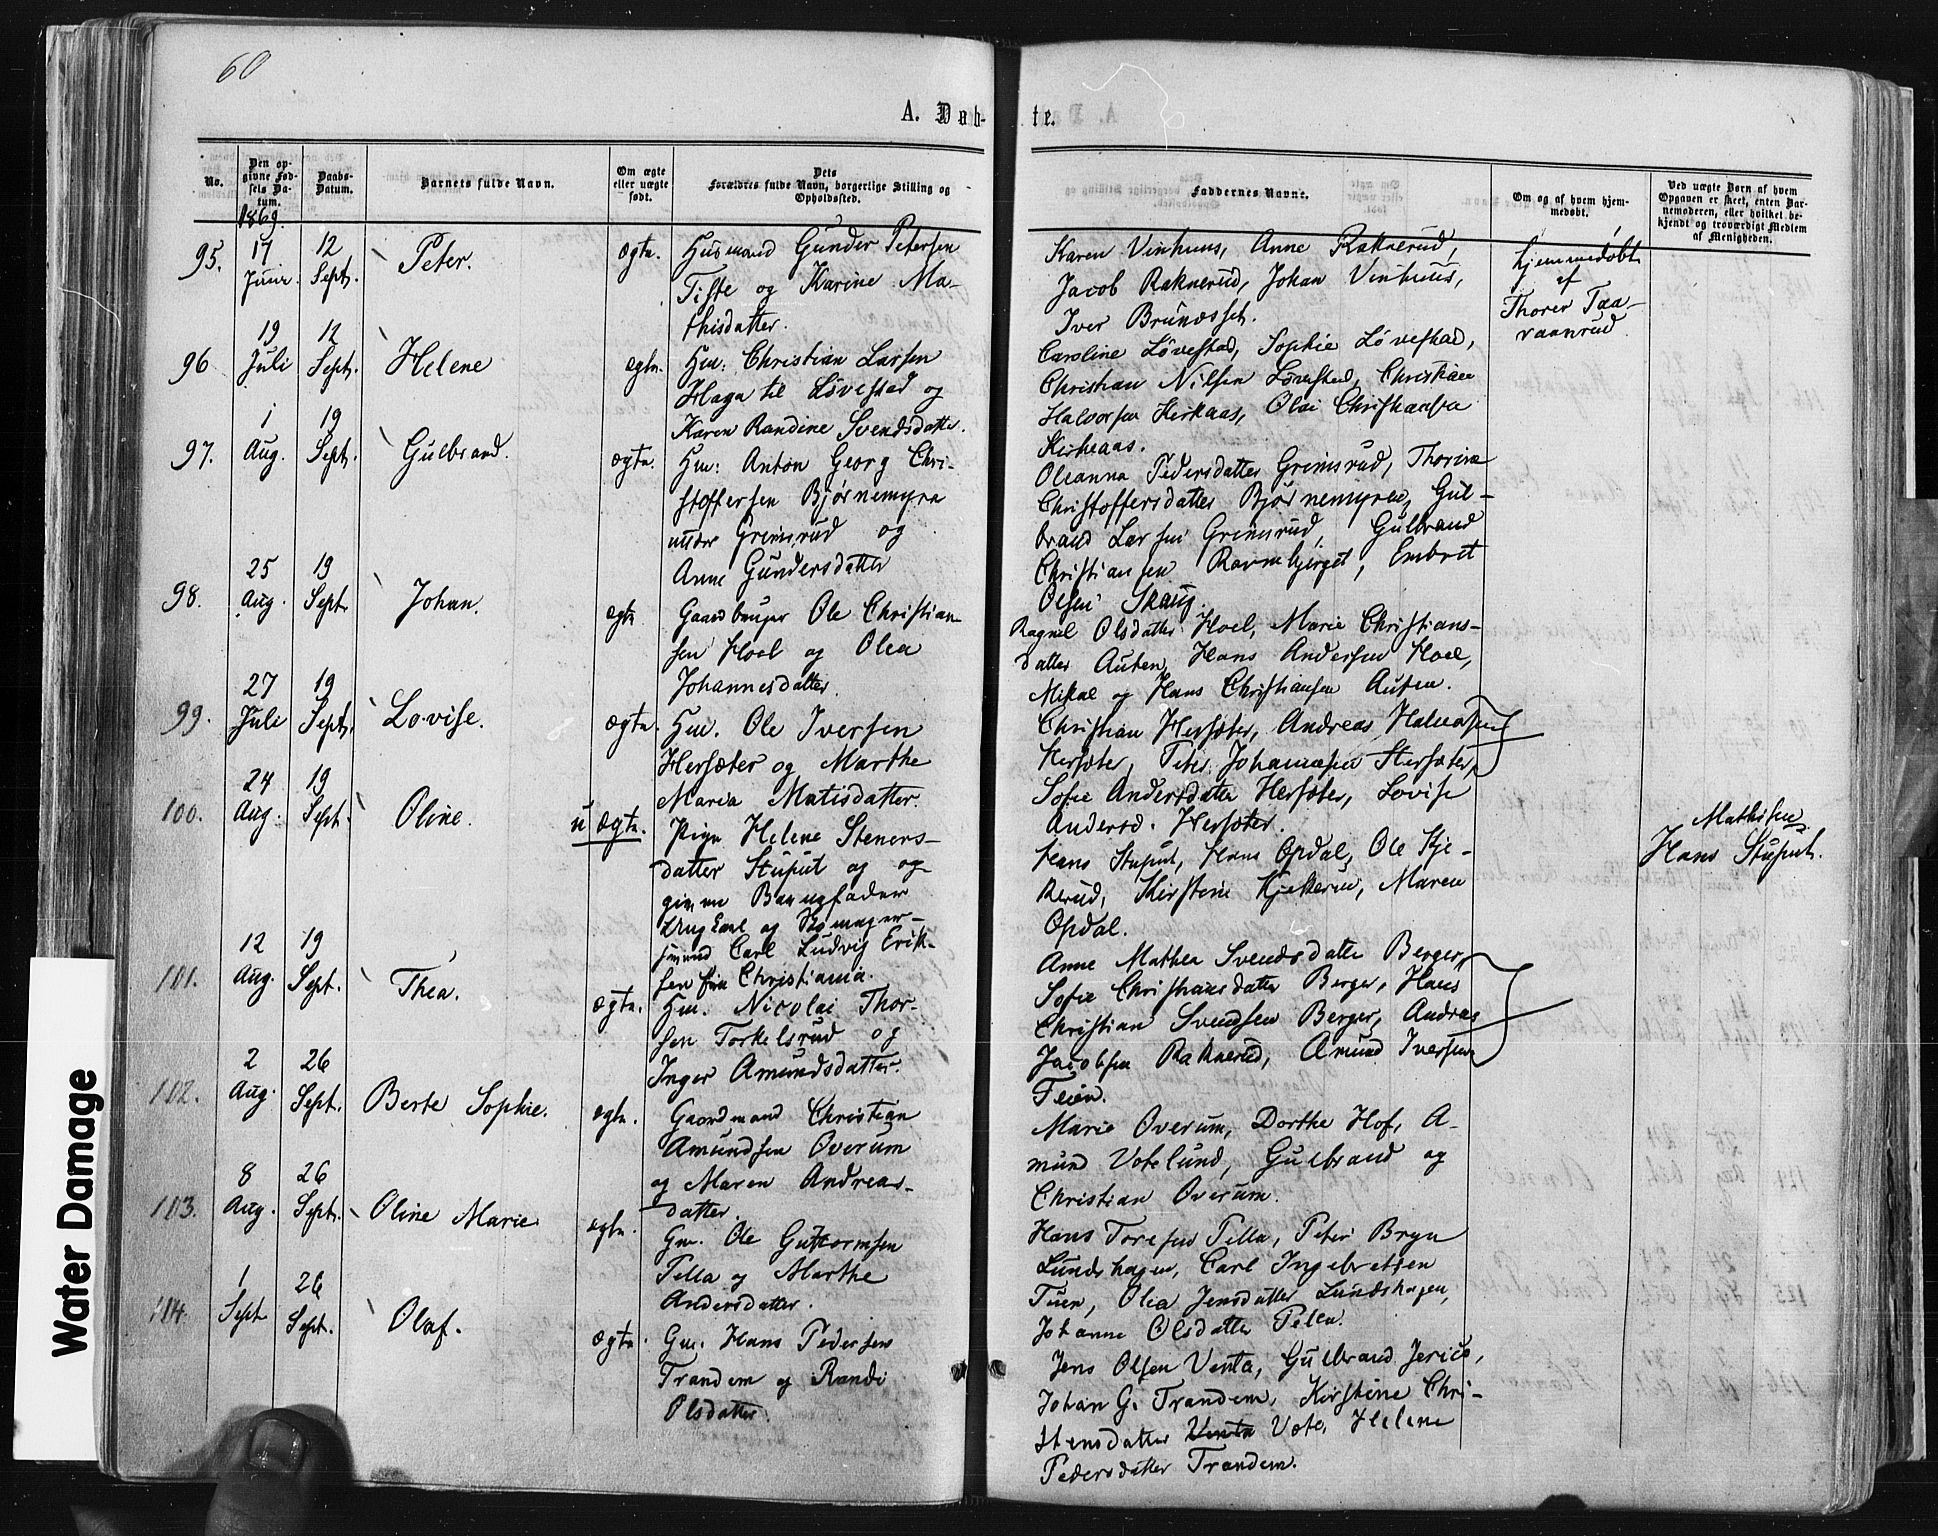 60
A. Døb-
te.
No.
Den op-
givne Fød-
sels Da-
tum.
Daabs-
Datum.
Barnets fulde Navn.
Om ægte
eller uægte
født.
Dets
Forældres fulde Navn, borgerlige Stilling og
Opholdssted.
Faddernes Navne.
Om og af hvem hjem-
medøbt.
Ved uægte Børn af hvem
Opgaven er skeet, enten Bar-
nemoderen, eller hvilket be-
kjendt og troværdigt Medlem
af Menigheden.
1869.
95. 17 Juni. 12 Sept. Peter. ægte.
Husmand Gunder Petersen
Tiste og Karine Ma-
thisdatter.
Karen Vinhuus, Anne Raknerud,
Jacob Raknerud, Johan Vinhuus,
Iver Brundsset.
hjemmedøbt
af
Thorer Taa-
raanrud
96 19 Juli 12 Sept. Helene ægte.
Hm: Christian Larsen
Haga til Løvestad og
Karen Randine Svendsdatter.
Caroline Løvestad, Sophie Løvestad,
Christian Nilsen Løvestad, Christian
Halvorsen Kirkaas, Olai Christiansen
Kirkeaas.
97. 1 Aug. 19 Sept. Gulbrand. ægte.
Hm: Anton Georg Chri-
stoffersen Bjørnemyra
under Grimsrud og
Anne Gundersdatter
Oleanna Pedersdatter Grimsrud, Thorine
Christoffersdatter Bjørnemyra, Gul-
brand Larsen Grimsrud, Gulbrand
Christiansen Ravnebjerget, Embret
Olsen Skaug.
98. 25 Aug. 19 Sept. Johan. ægte
Gaardbruger Ole Christian-
sen Hoel og Olea
Johannesdatter.
Ragnil Olsdatter Hoel, Marie Christians-
datter Auten, Hans Andersen Hoel,
Mikal og Hans Christiansen Auten.
99. 27 Juli 19 Sept. Lovise. ægte.
Hm. Ole Iversen
Hersæter og Marthe
Maria Matisdatter.
Christian Hersæter, Andreas Halvorsen
Hersæter, Peter Johannesen Hersæter,
Sofie Andersdatter Hersæter, Lovise
Andersd. Hersæter.
100. 24 Aug. 19 Sept. Oline. uægte.
Pige Helene Steners-
datter Stuput og op-
given Barnefader
Ungkarl og Skomager-
svend Carl Ludvig Erik-
sen fra Christiania.
Hans Stuput, Hans Opdal, Ole Kje-
kerud, Kirstine Kjekerud, Maren
Opdal.
Mathisen
Hans Stuput.
101. 12 Aug. 19 Sept. Thea. ægte.
Hm. Nicolai Thor-
sen Torkelsrud og
Inger Amundsdatter.
Anne Mathea Svendsdatter Berger,
Sofie Christiansdatter Berger, Hans
Christian Svendsen Berger, Andreas
Jacobsen Raknerud, Amund Iversen
Teien.
112. 2 Aug. 26 Sept. Berte Sophie. ægte.
Gaardmand Christian
Amundsen Overum
og Maren Andreas-
datter.
Marie Overum, Dorthe Hof, A-
mund Votelund, Gulbrand og
Christian Overum.
113. 8 Aug. 26 Sept. Oline Marie ægte.
Gm. Ole Guttormsen
Pella og Marthe
Andersdatter.
Hans Toresen Pella, Peter Bryn
Lundshagen, Carl Ingebretsen
Tuen, Olea Jensdatter Lundshagen,
Johanne Olsdatter Pella.
114. 1 Sept 26 Sept. Olaf. ægte.
Gm. Hans Pedersen
Trandem og Randi
Olsdatter.
Jens Olsen Venta, Gulbrand Jerico,
Johan G. Trandem, Kirstine Chri-
stensdatter Venta Vote, Helene
Pedersdatter Trandem.
Water Damage